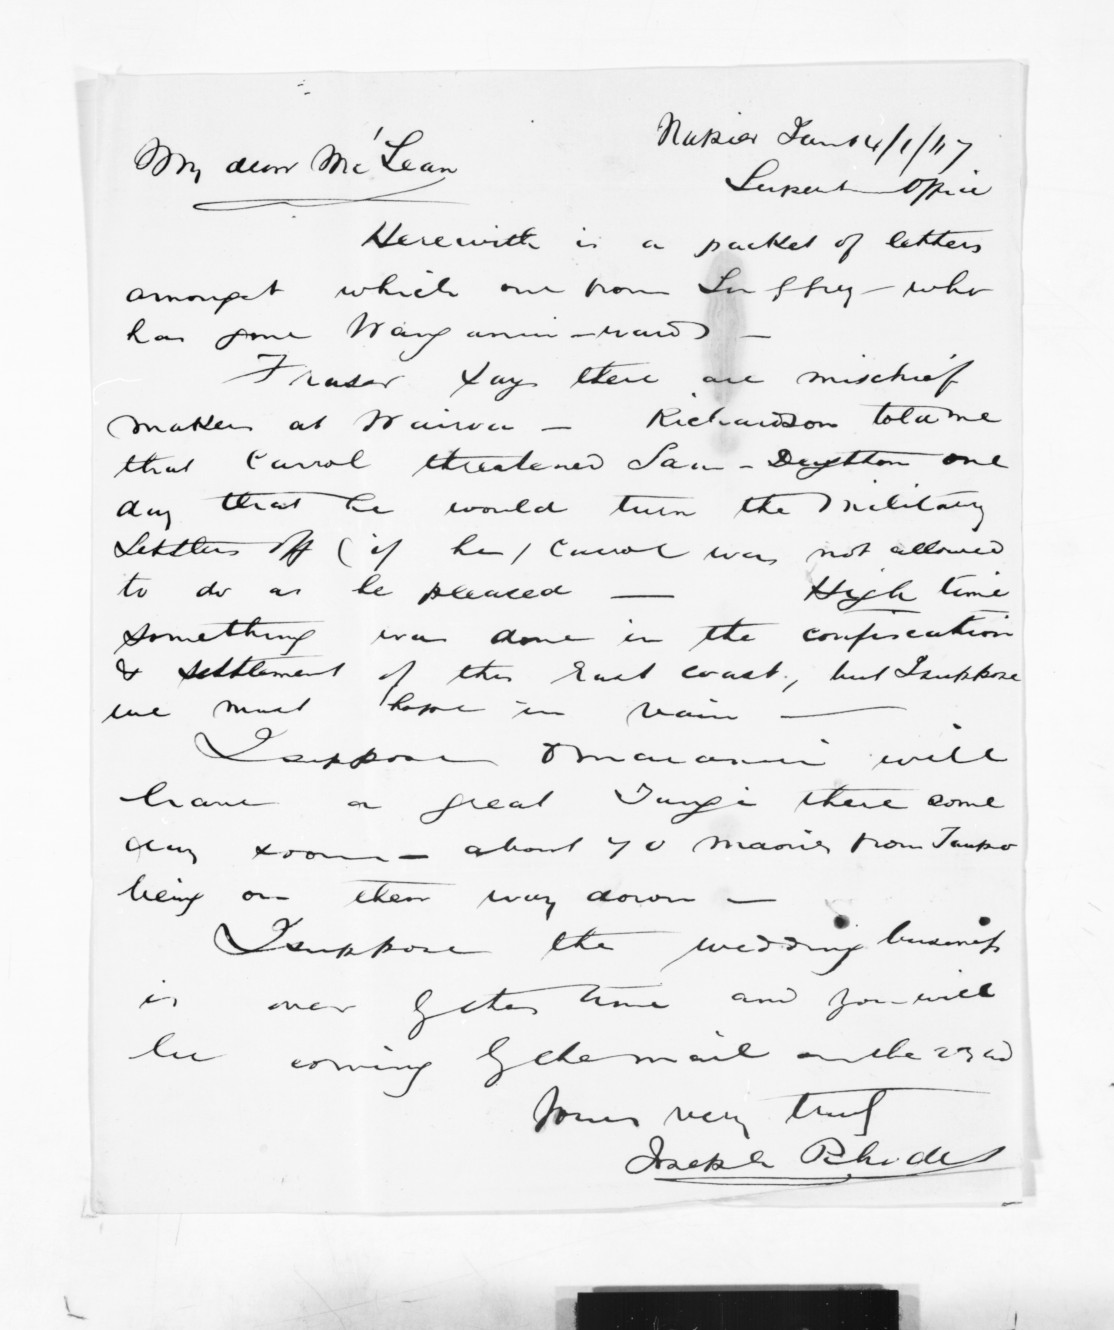 Napier Jan 14/1/67
My dear McLean
Superts Office
Herewith is a packet of letters
amongst which one from St George who
has gone Wanganui-ward -
Fraser says there are mischief
makers at Wairoa - Richardson told me
that Carrol threatened Sam - Deighton one
day that he would turn the Military
Settlers off (if he / Carrol was not allowed
to do as he pleased — High time
something was done in the confiscation
& settlement of this East coast, but I suppose
we must hope in vain —
I suppose Omaranui will
have a great Tangi there some
day soon - about 70 maories from Taupo
being on their way down -
I suppose the wedding business
is over by this time and you will
be coming by the mail on the 23rd
Yours very truly
Joseph Rhodes